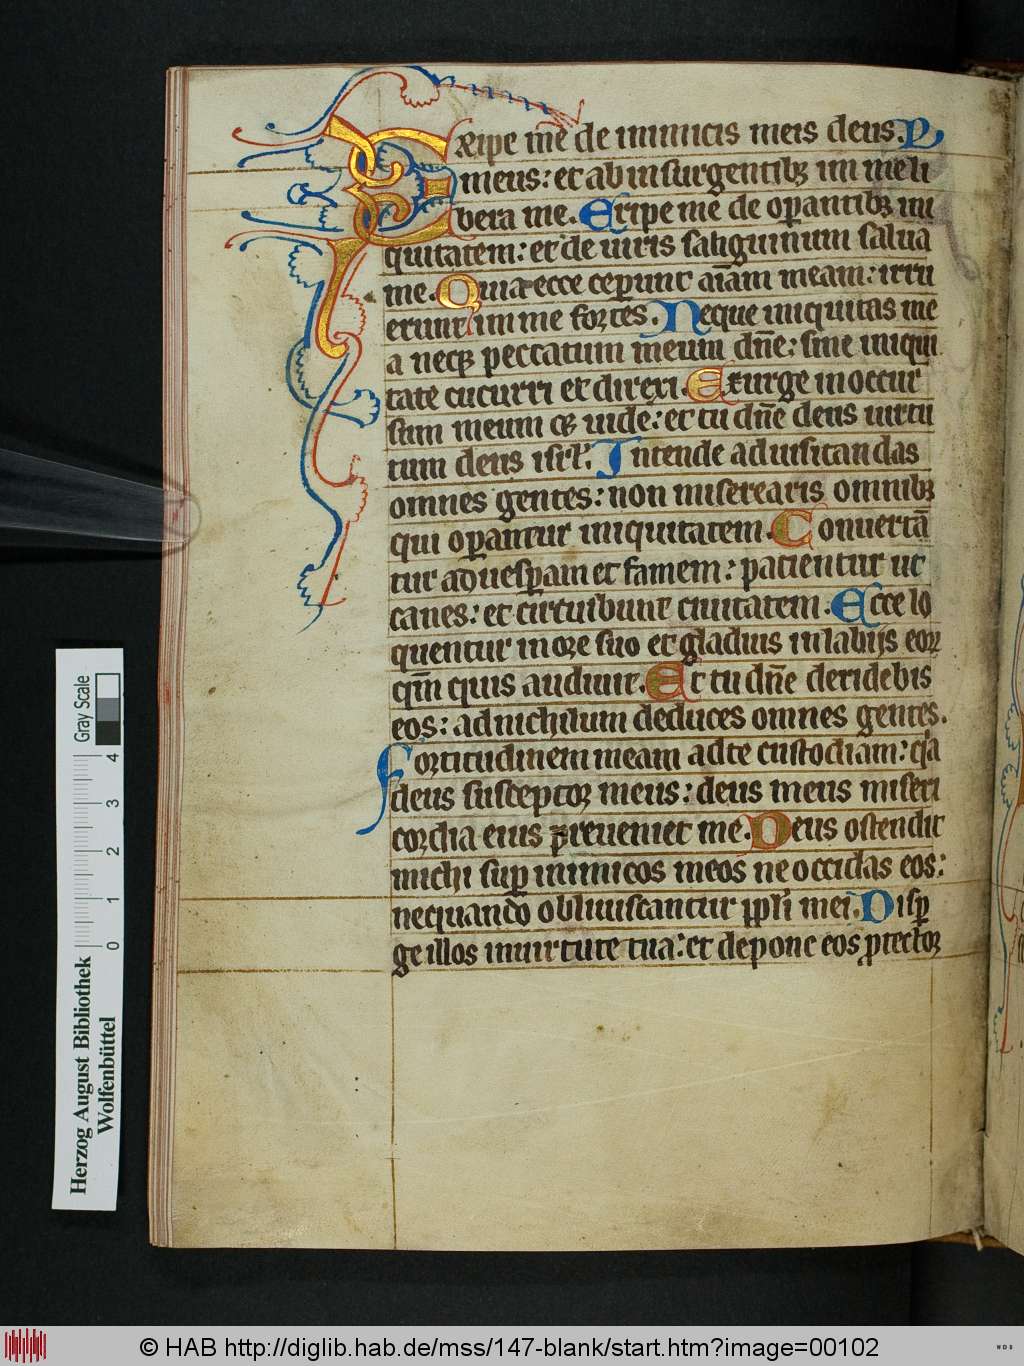 Eripe me de inimicis meis deus
meus: et ab insurgentibꝫ in me li
bera me. Eripe me de oꝑantibꝫ ini
quitatem: et de uiris sanguinum salua
me. Quia ecce ceꝑunt aīam meam: irru
erunt in me fortes. Neque iniquitas me
a necꝫ peccatum meum dn̄e: sine iniqui
tate cucurri et direxi. Exurge in occur
sum meum & uide: et tu dn̄e deus uirtu
tum deus isrl̄. Intende ad uisitandas
omnes gentes: non miserearis omnibꝫ
qui oꝑantur iniquitatem. Conuertā
tur ad uesꝑam et famem: patientur ut
canes: et circuibunt ciuitatem. Ecce lo
quentur in ore suo et gladius in labijs eoꝝ
qm̄ quis audiuit. Et tu dn̄e deridebis
eos: ad nichilum deduces omnes gentes.
Fortitudinem meam ad te custodiam: qa
deus susceptor meus: deus meus miseri
cordia eius preueniet me. Deus ostendit
michi suꝑ inimicos meos ne occidas eos:
nequando obliuiscantur ppl̄i mei. Disꝑ
ge illos in uirtute tua: et depone eos ꝓtector
Gray Scale
4
3
2
1
0
Herzog August Bibliothek
Wolfenbüttel
© HAB http://diglib.hab.de/mss/147-blank/start.htm?image=00102